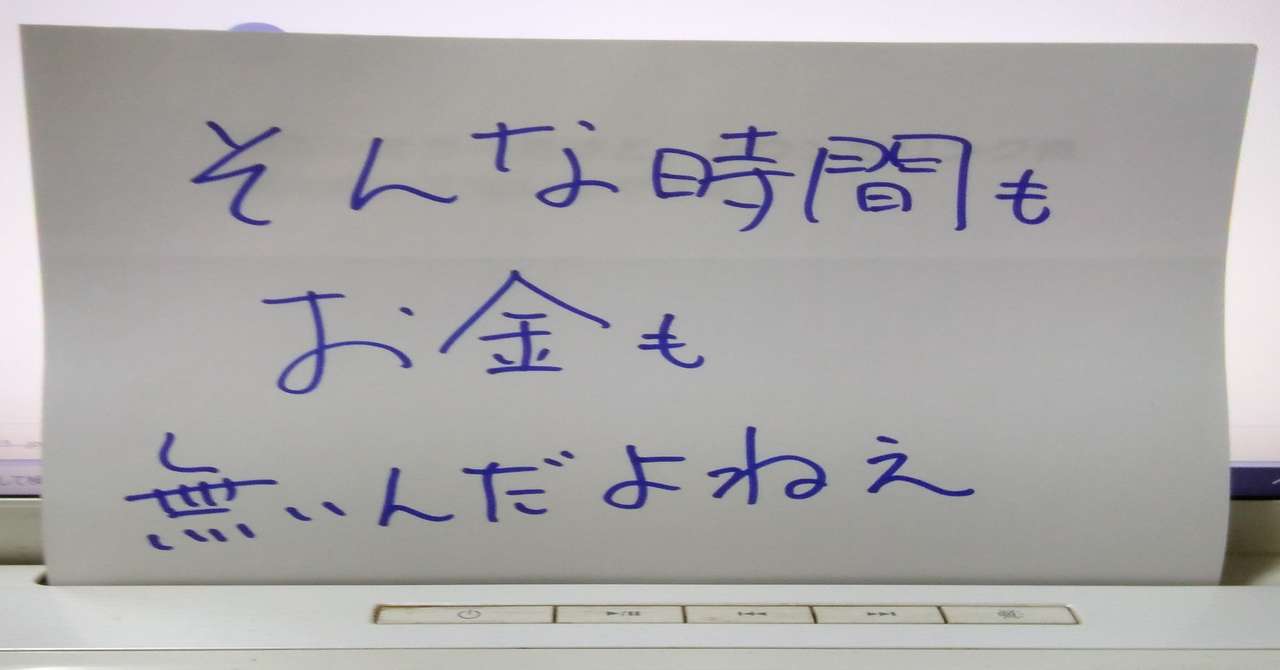 そんな時間も
お金も
無いんだよねえ